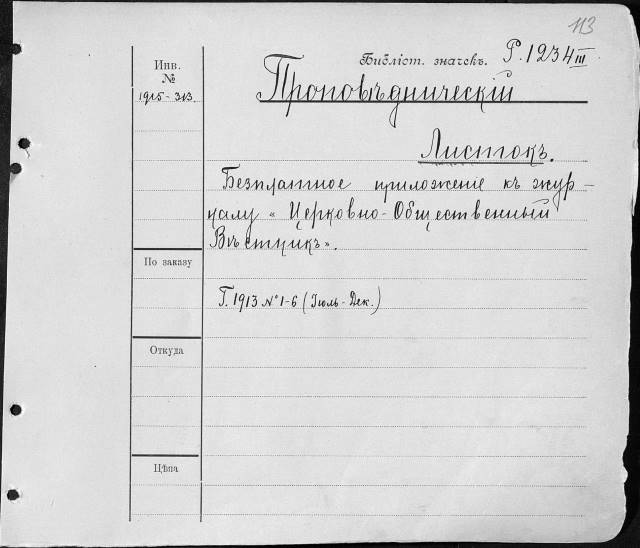 113
Библіот. значекъ. Р. 1234 III
Инв.
№
1915-313
Проповѣдническій
Листокъ.
Безплатное приложеніе къ жур-
налу „Церковно-Общественный
Вѣстникъ".
По заказу
Г. 1913 № 1-6 (Іюль-Дек.)
Откуда
Цѣна